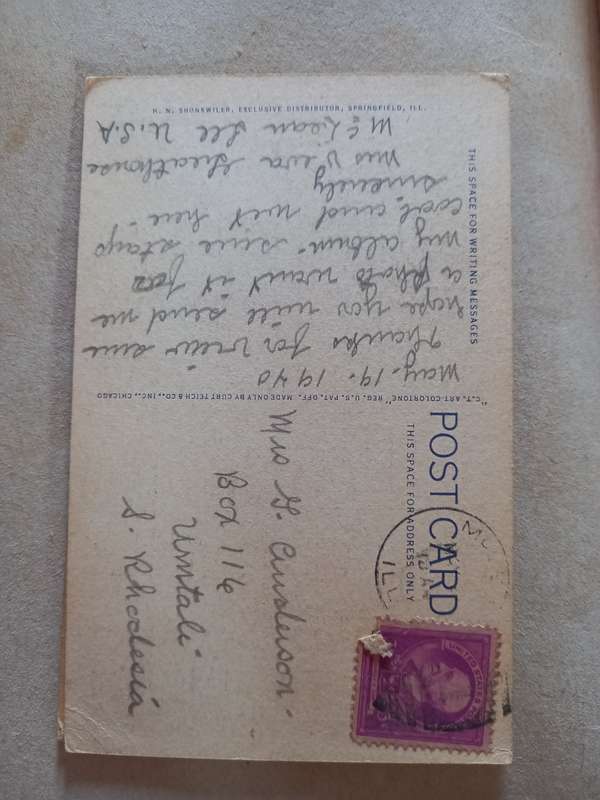 H. N. SHONKWILER, EXCLUSIVE DISTRIBUTOR, SPRINGFIELD, ILL.
THIS SPACE FOR WRITING MESSAGES
May. 19. 1940
Thanks for view sure
hope you will send me
a photo want it for
my album - since stays
cool, and wet here.
Sincerely
Mrs Greathouse
McLean Ill U.S.A
"C.T. ART-COLORTONE" REG. U.S. PAT. OFF. MADE ONLY BY CURT TEICH & CO., INC., CHICAGO
POST CARD
THIS SPACE FOR ADDRESS ONLY
AM
ILL
UNITED STATES
Mrs G. Anderson.
Box 116
Umtali
S. Rhodesia